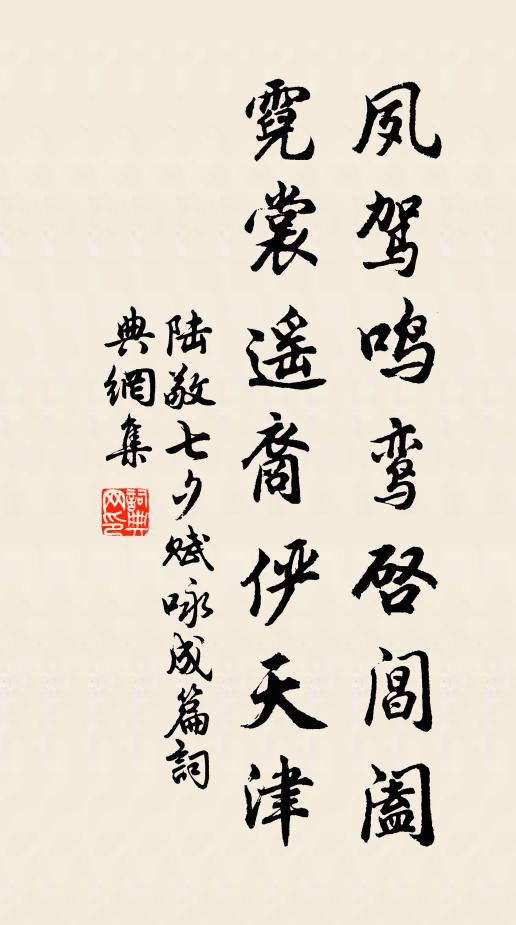 夙驾鸣鸾启阊阖
霓裳遥裔俨天津
陆敬七夕赋咏成篇詞
典網集
詞典网印